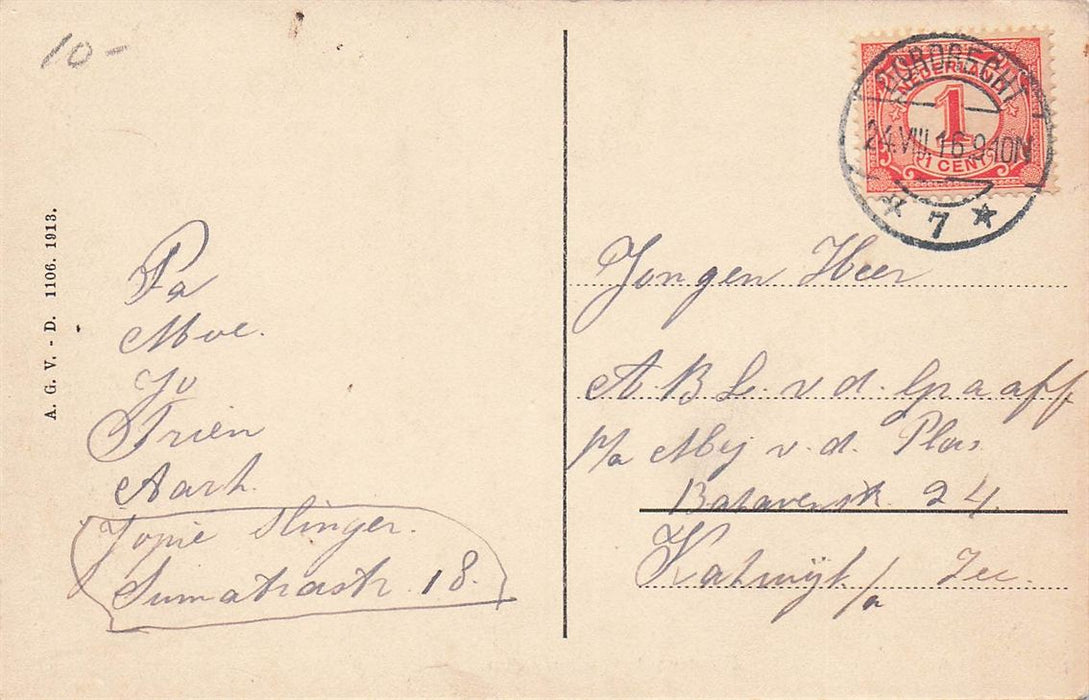 10-
NEDERLAND
1
1 CENT
DORDRECHT
24.VIII.16.9-10N
* 7 *
A. G. V. - D. 1106. 1913.
Pa
Moe.
Jo
Trien
Aart.
Jopie Slinger.
Sumatrastr. 18.
Jongen Heer
A. B. L. v. d. Graaff
p/a Mej v. d. Plas.
Bataverstr. 24.
Katwijk a/ Zee.